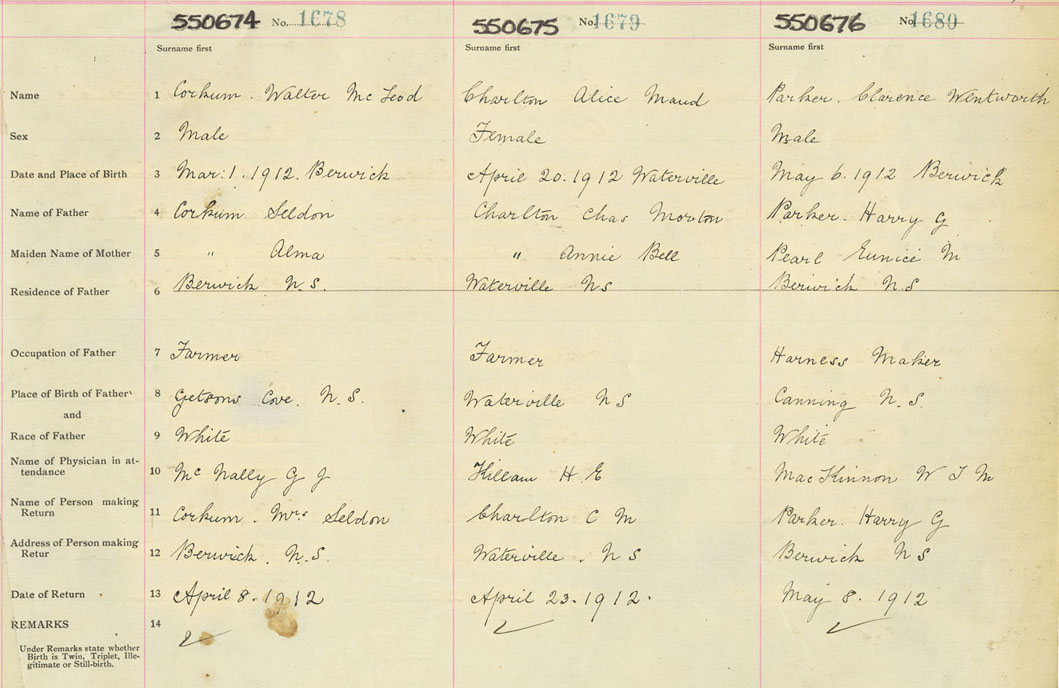 550674 No. 1678 550675 No 1679 550676 No 1680
Surname first Surname first Surname first
Name 1 Corkum. Walter Mc Leod Charlton Alice Maud Parker. Clarence Wentworth
Sex 2 Male Female Male
Date and Place of Birth 3 Mar: 1. 1912. Berwick April 20. 1912 Waterville May 6. 1912 Berwick
Name of Father 4 Corkum Seldon Charlton Chas Morton Parker. Harry G
Maiden Name of Mother 5 " Alma " Annie Bell Pearl Eunice M
Residence of Father 6 Berwick N.S. Waterville NS Berwick N.S
Occupation of Father 7 Farmer Farmer Harness Maker
Place of Birth of Father 8 Getsons Cove. N.S. Waterville NS Canning N.S.
and
Race of Father 9 White White White
Name of Physician in at-
tendance 10 Mc Nally G J Killam H E MacKinnon W J M
Name of Person making
Return 11 Corkum. Mrs Seldon Charlton C M Parker. Harry G
Address of Person making
Retur 12 Berwick. N.S. Waterville. NS Berwick NS
Date of Return 13 April 8. 1912 April 23. 1912. May 8. 1912
REMARKS 14
Under Remarks state whether
Birth is Twin, Triplet, Ille-
gitimate or Still-birth.